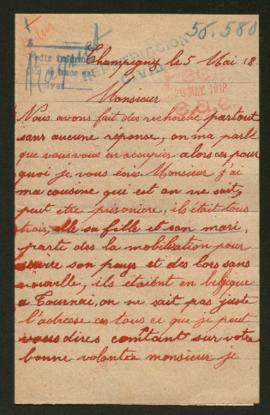 56.580
REPATRIATION
CIVIL
20 MAY 1918
Champigny le 5 Mai 18
Monsieur
Nous avons fait des recherche partout
sans aucune réponse, on ma parlé
que vous vous en occupier alors ces pour
quoi je vous écris Monsieur j'ai
ma cousine qui est on ne sait,
peut être prisonière, il était tous
trois, elle sa fille et son mari,
parti des la mobilisation pour
son pays et des lors sans
nouvelle, ils étaient en belgique
a Tournai, on ne sait pas juste
l'adresse ces tous ce que je peut
vous dires comtant sur votre
bonne volontée monsieur je